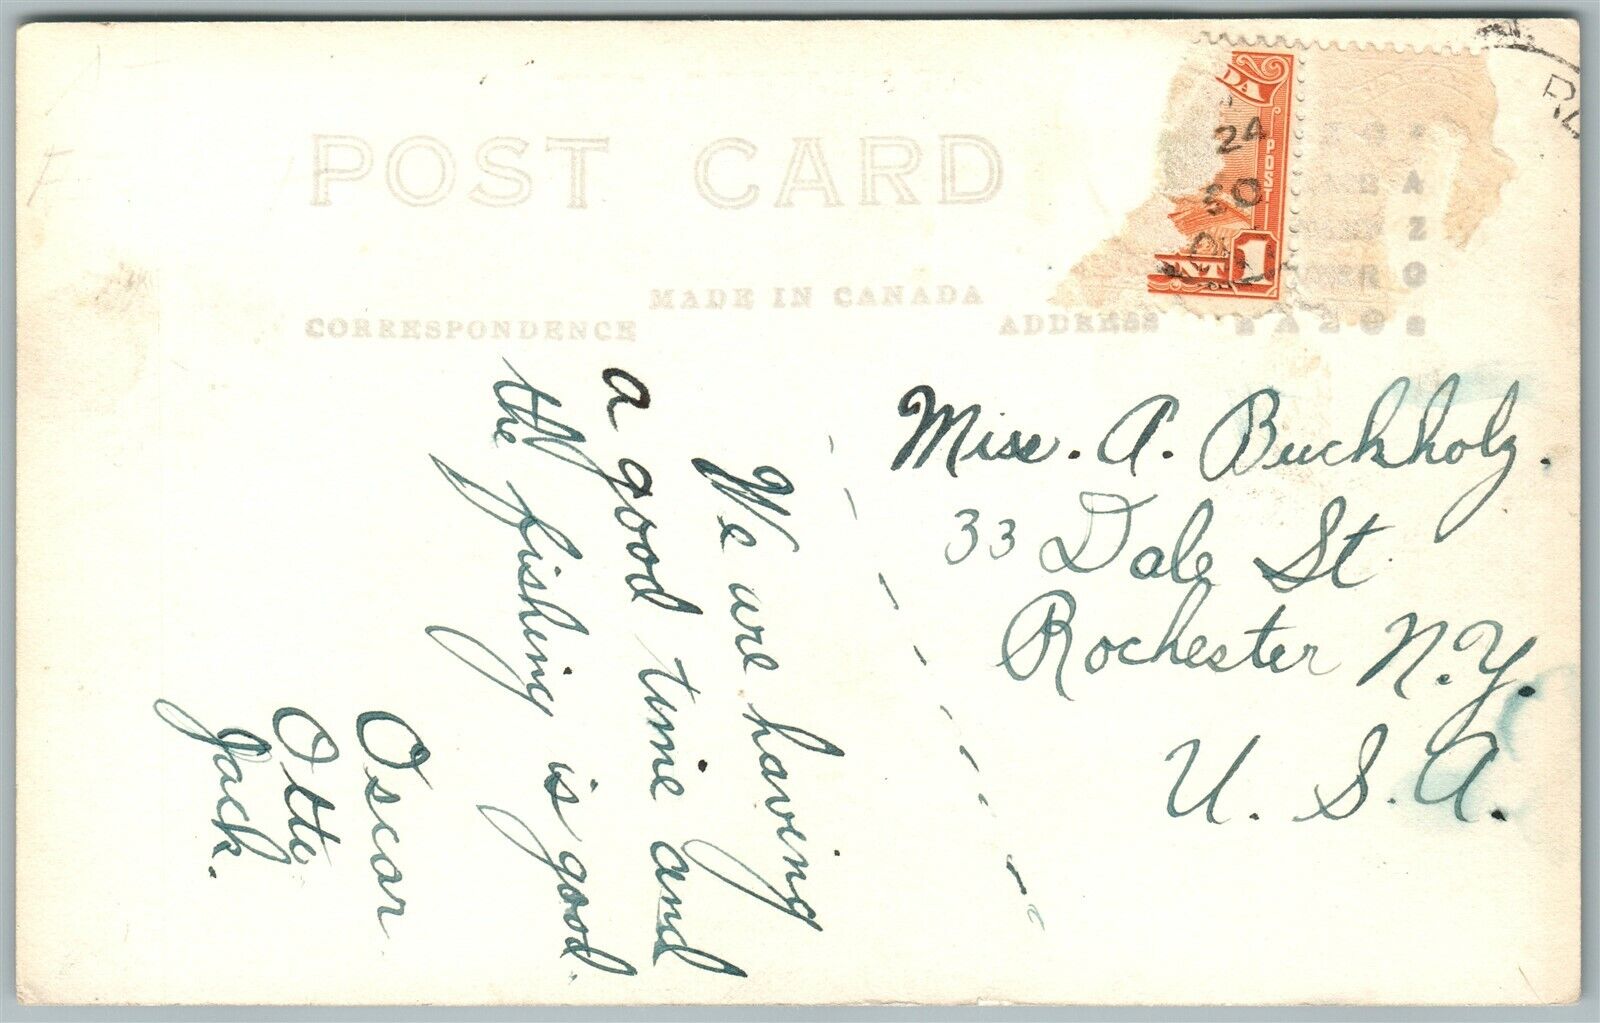 POST CARD
MADE IN CANADA
CORRESPONDENCE
ADDRESS
DA
POST
24
50
1
NT
AZO
We are having
a good time and
the fishing is good.
Oscar
Otto
Jack.
Miss. A. Buckholz.
33 Dale St
Rochester N.Y.
U.S.A.